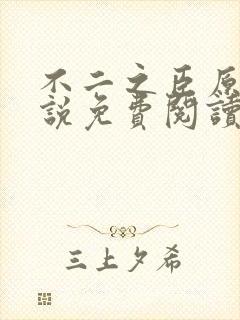 不二之臣原
說免費閱讀
三上夕希